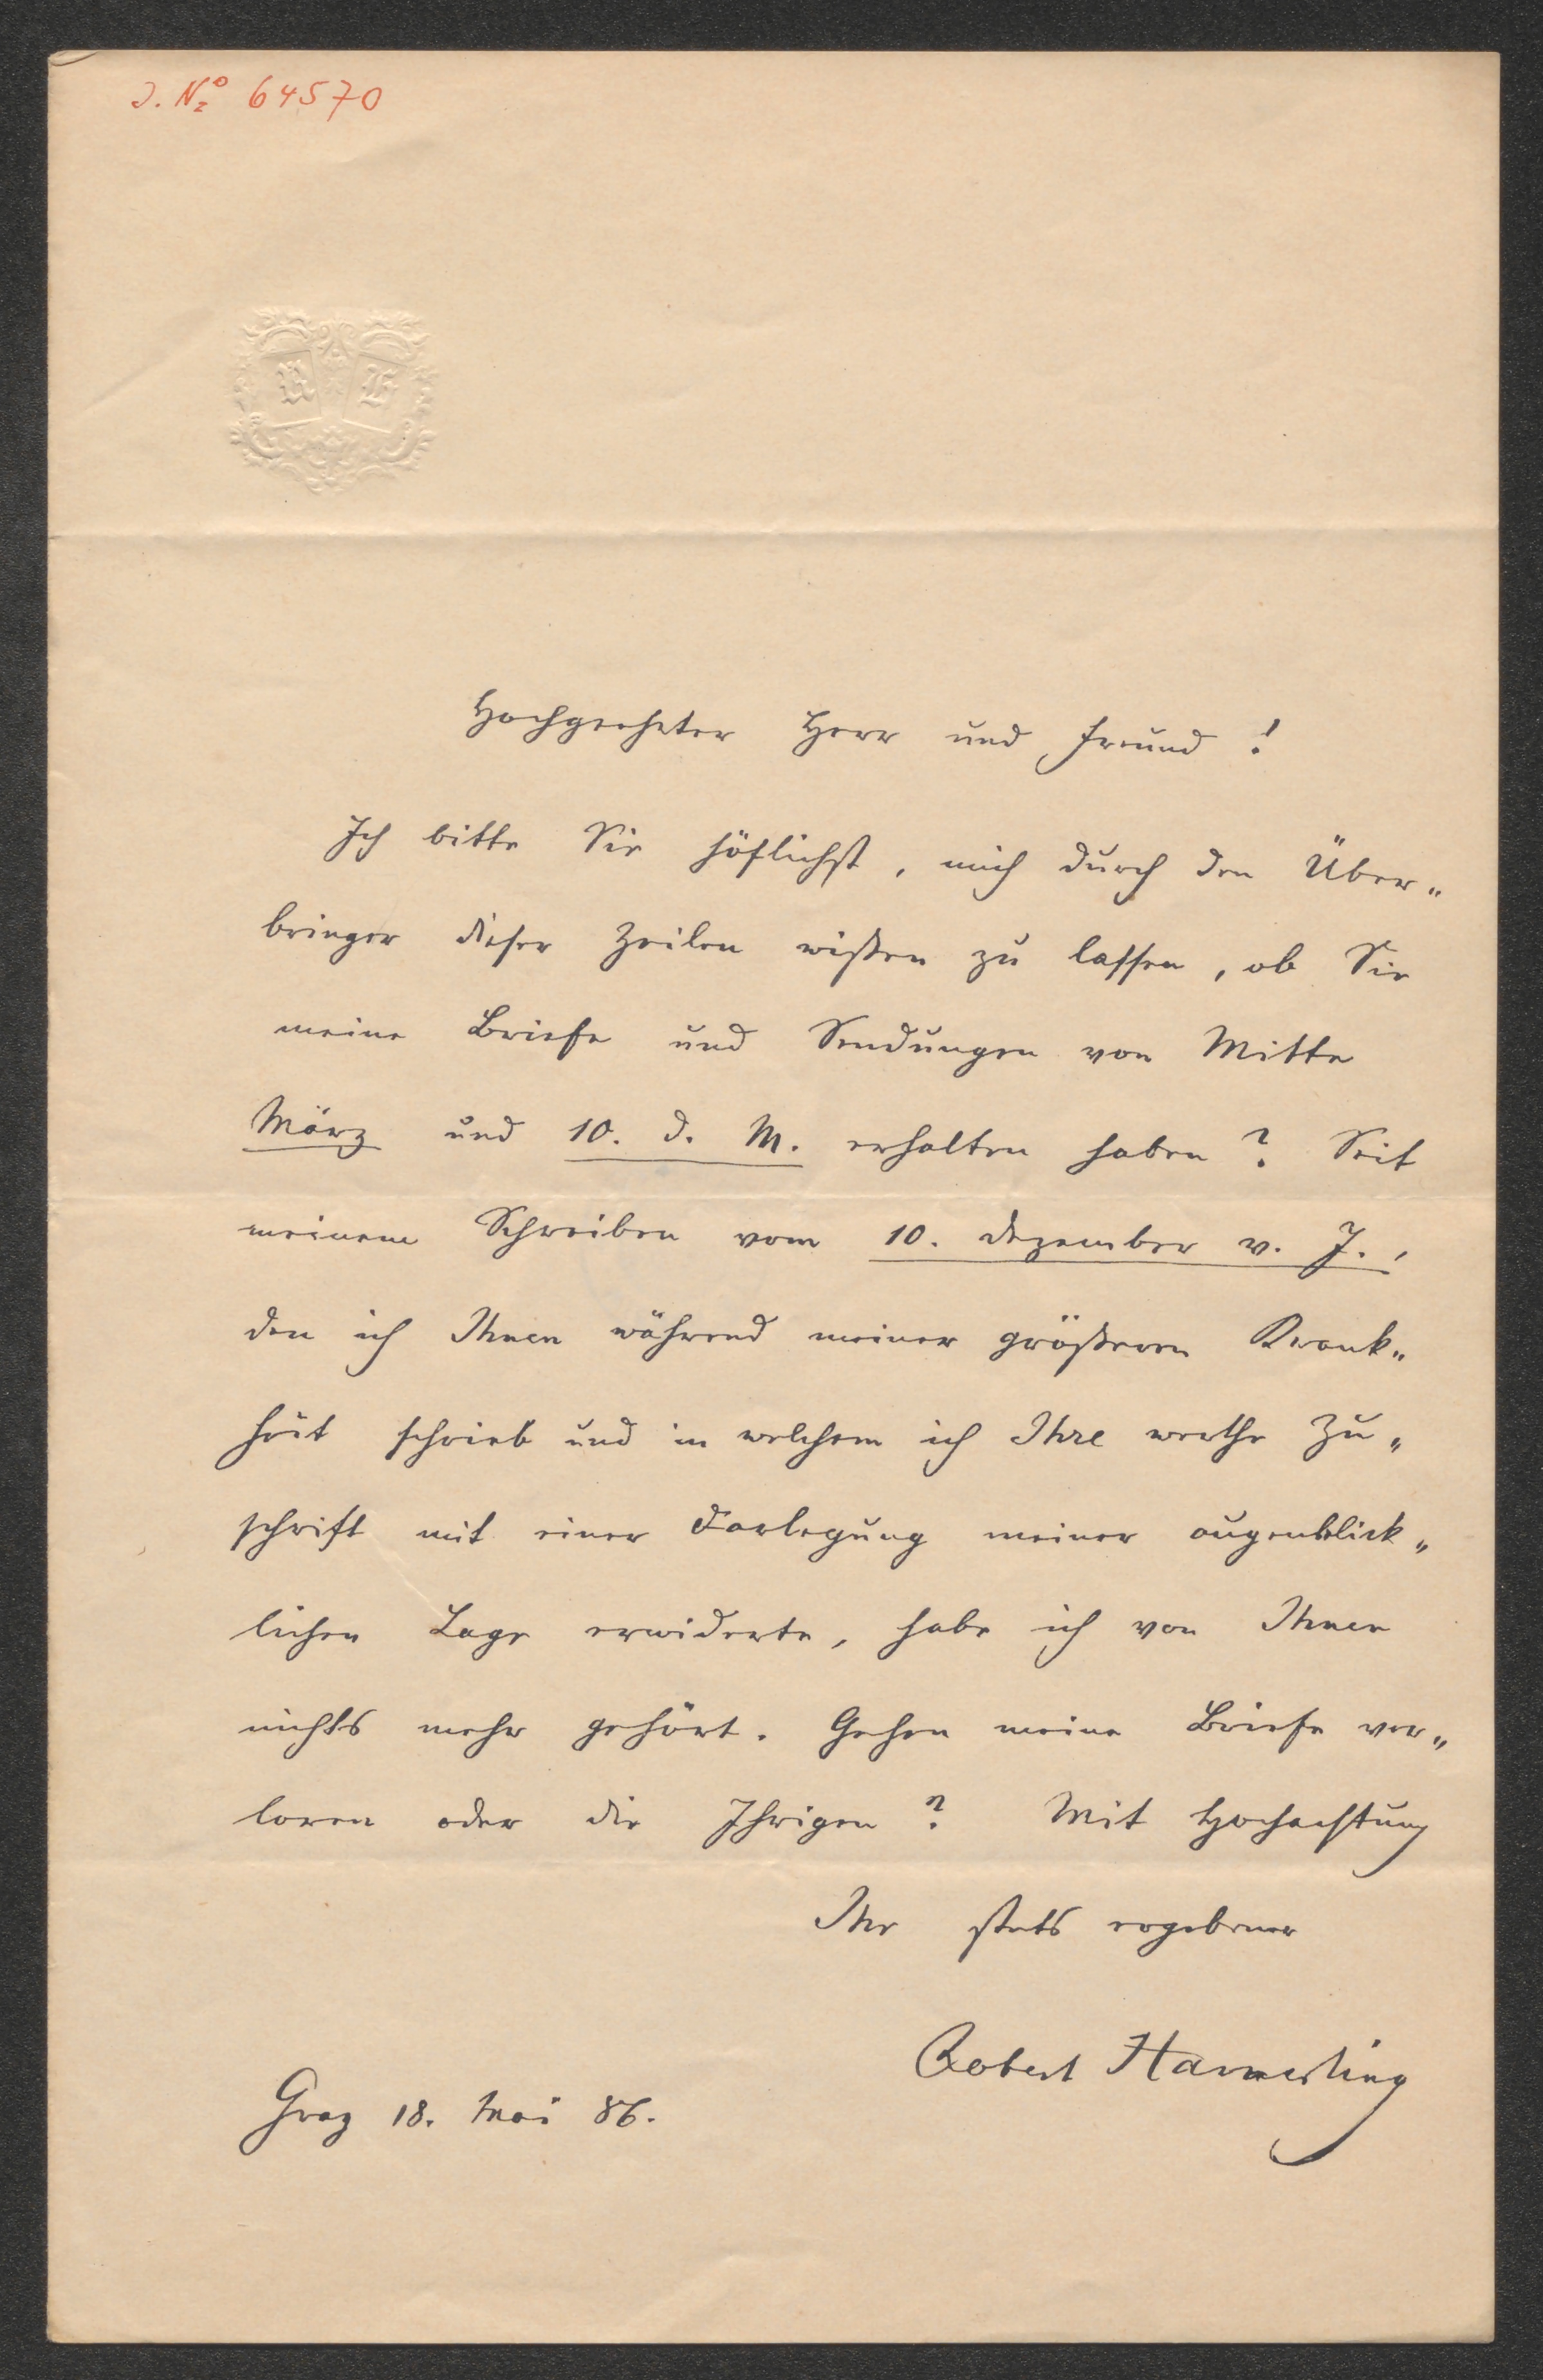 J. No 64570
R H
Hochgeehrter Herr und Freund !
Ich bitte Sie höflichst, mich durch den Über„
bringer dieser Zeilen wißen zu lassen, ob Sie
meine Briefe und Sendungen von Mitte
März und 10. d. M. erhalten haben ? Seit
meinem Schreiben vom 10. Dezember v. J.,
den ich Ihnen während meiner größeren Krank„
heit schrieb und in welchem ich Ihre werthe Zu„
schrift mit einer Darlegung meiner augenblick„
lichen Lage erwiderte, habe ich von Ihnen
nichts mehr gehört. Gehen meine Briefe ver„
loren oder die Ihrigen ? Mit Hochachtung
Ihr stets ergebener
Robert Hamerling
Graz 18. Mai 86.